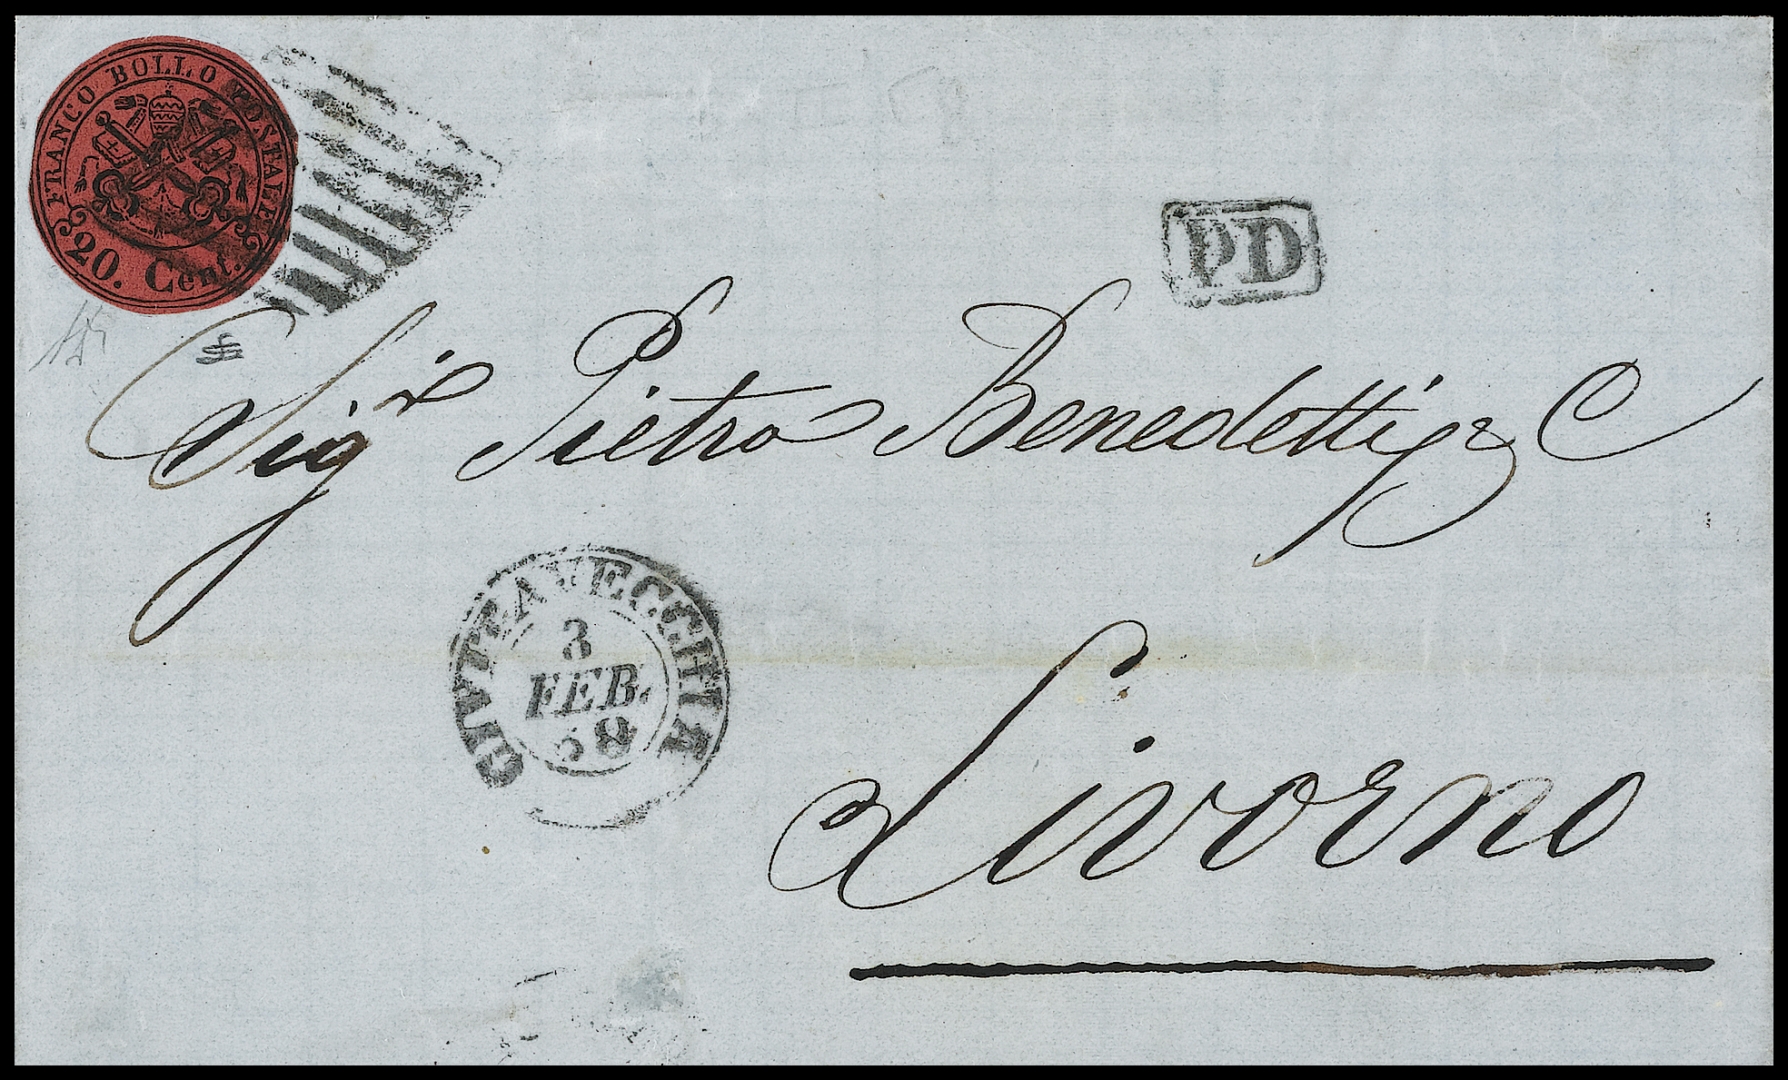 FRANCO BOLLO POSTALE
20. Cent.
PD
Sigr Pietro Benedetti & C
CIVITAVECCHIA
3
FEB.
68
Livorno